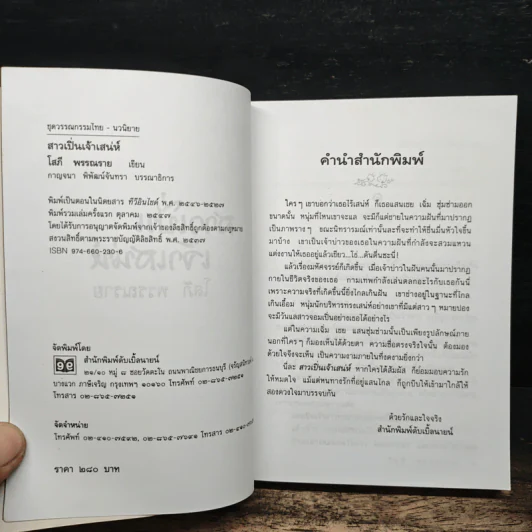 ชุดวรรณกรรมไทย - นวนิยาย
สาวเปิ่นเจ้าเสน่ห์
โสภี พรรณราย เขียน
กาญจนา พิพัฒน์จันทรา บรรณาธิการ
พิมพ์เป็นตอนในนิตยสาร ทีวีอินไซด์ พ.ศ. ๒๕๔๖-๒๕๔๗
พิมพ์รวมเล่มครั้งแรก ตุลาคม ๒๕๔๗
โดยได้รับการอนุญาตจัดพิมพ์จากเจ้าของลิขสิทธิ์ถูกต้องตามกฎหมาย
สงวนลิขสิทธิ์ตามพระราชบัญญัติลิขสิทธิ์ พ.ศ. ๒๕๓๗
ISBN 974-660-230-6
จัดพิมพ์โดย
สำนักพิมพ์ดับเบิ้ลนายน์
๒๑/๑๐ หมู่ ๘ ซอยวัดตะโน ถนนพาณิชยการธนบุรี
บางแวก ภาษีเจริญ กรุงเทพฯ ๑๐๑๖๐ โทรศัพท์ ๐๒-๘๖๕-๗๒๕๑
โทรสาร ๐๒-๘๖๕-๗๒๕๑
จัดจำหน่าย
โทรศัพท์ ๐๒-๔๑๐-๗๕๙๒, ๐๒-๘๖๕-๗๖๙๑ โทรสาร
ราคา ๒๘๐ บาท
คำนำสำนักพิมพ์
ใครๆ เขาบอกว่าเธอไร้เสน่ห์ ก็เธอแสนเชย เฉิ่ม ซุ่มซ่ามออก
ขนาดนั้น หนุ่มที่ไหนเขาจะแล จะมีก็แต่ชายในความฝันที่มาปรากฏ
เป็นภาพรางๆ ขณะนิทรารมณ์เท่านั้นละที่จะทำให้ยิ้มมีนหัวใจขึ้น
มาบ้าง เขาเป็นเจ้าบ่าวของเธอในความฝันที่กำลังจะสวมแหวน
แต่งงานให้เธออยู่แล้วเชียว...โธ่...ดันตื่นซะนี่!
แล้วเรื่องมหัศจรรย์ก็เกิดขึ้น เมื่อเจ้าบ่าวในฝันคนนั้นมาปรากฏ
กายในชีวิตจริงของเธอ กามเทพกำลังเล่นตลกอะไรกับเธอกันนี่
เพราะความจริงที่เกิดขึ้นนี้ยิ่งไกลเกินฝัน เขาช่างอยู่ในฐานะที่ไกล
เกินเอื้อม หนุ่มนักบริหารทรงเสน่ห์อย่างเขาที่มีแต่สาวๆ หมายปอง
จะมีวันแลสาวจอมเป็นอย่างเธอได้อย่างไร
แต่ในความเฉิ่ม เชย แสนซุ่มซ่ามนั้นเป็นเพียงรูปลักษณ์ภาย
นอกที่ใครๆ ก็มองเห็นได้ด้วยตา ความซื่อตรงจริงใจนั้น ต้องมอง
ด้วยใจจึงจะเห็น เป็นความงามภายในที่งดงามยิ่งกว่า
นี่ละ สาวเปิ่นเจ้าเสน่ห์ หากใครได้สัมผัส ก็ย่อมมอบความรัก
ให้หมดใจ แม้แต่หนทางรักที่อยู่แสนไกล ก็ถูกบีบให้เข้ามาใกล้ให้
สองดวงใจมาบรรจบกัน
ด้วยรักและใจจริง
สำนักพิมพ์ดับเบิ้ลนายน์